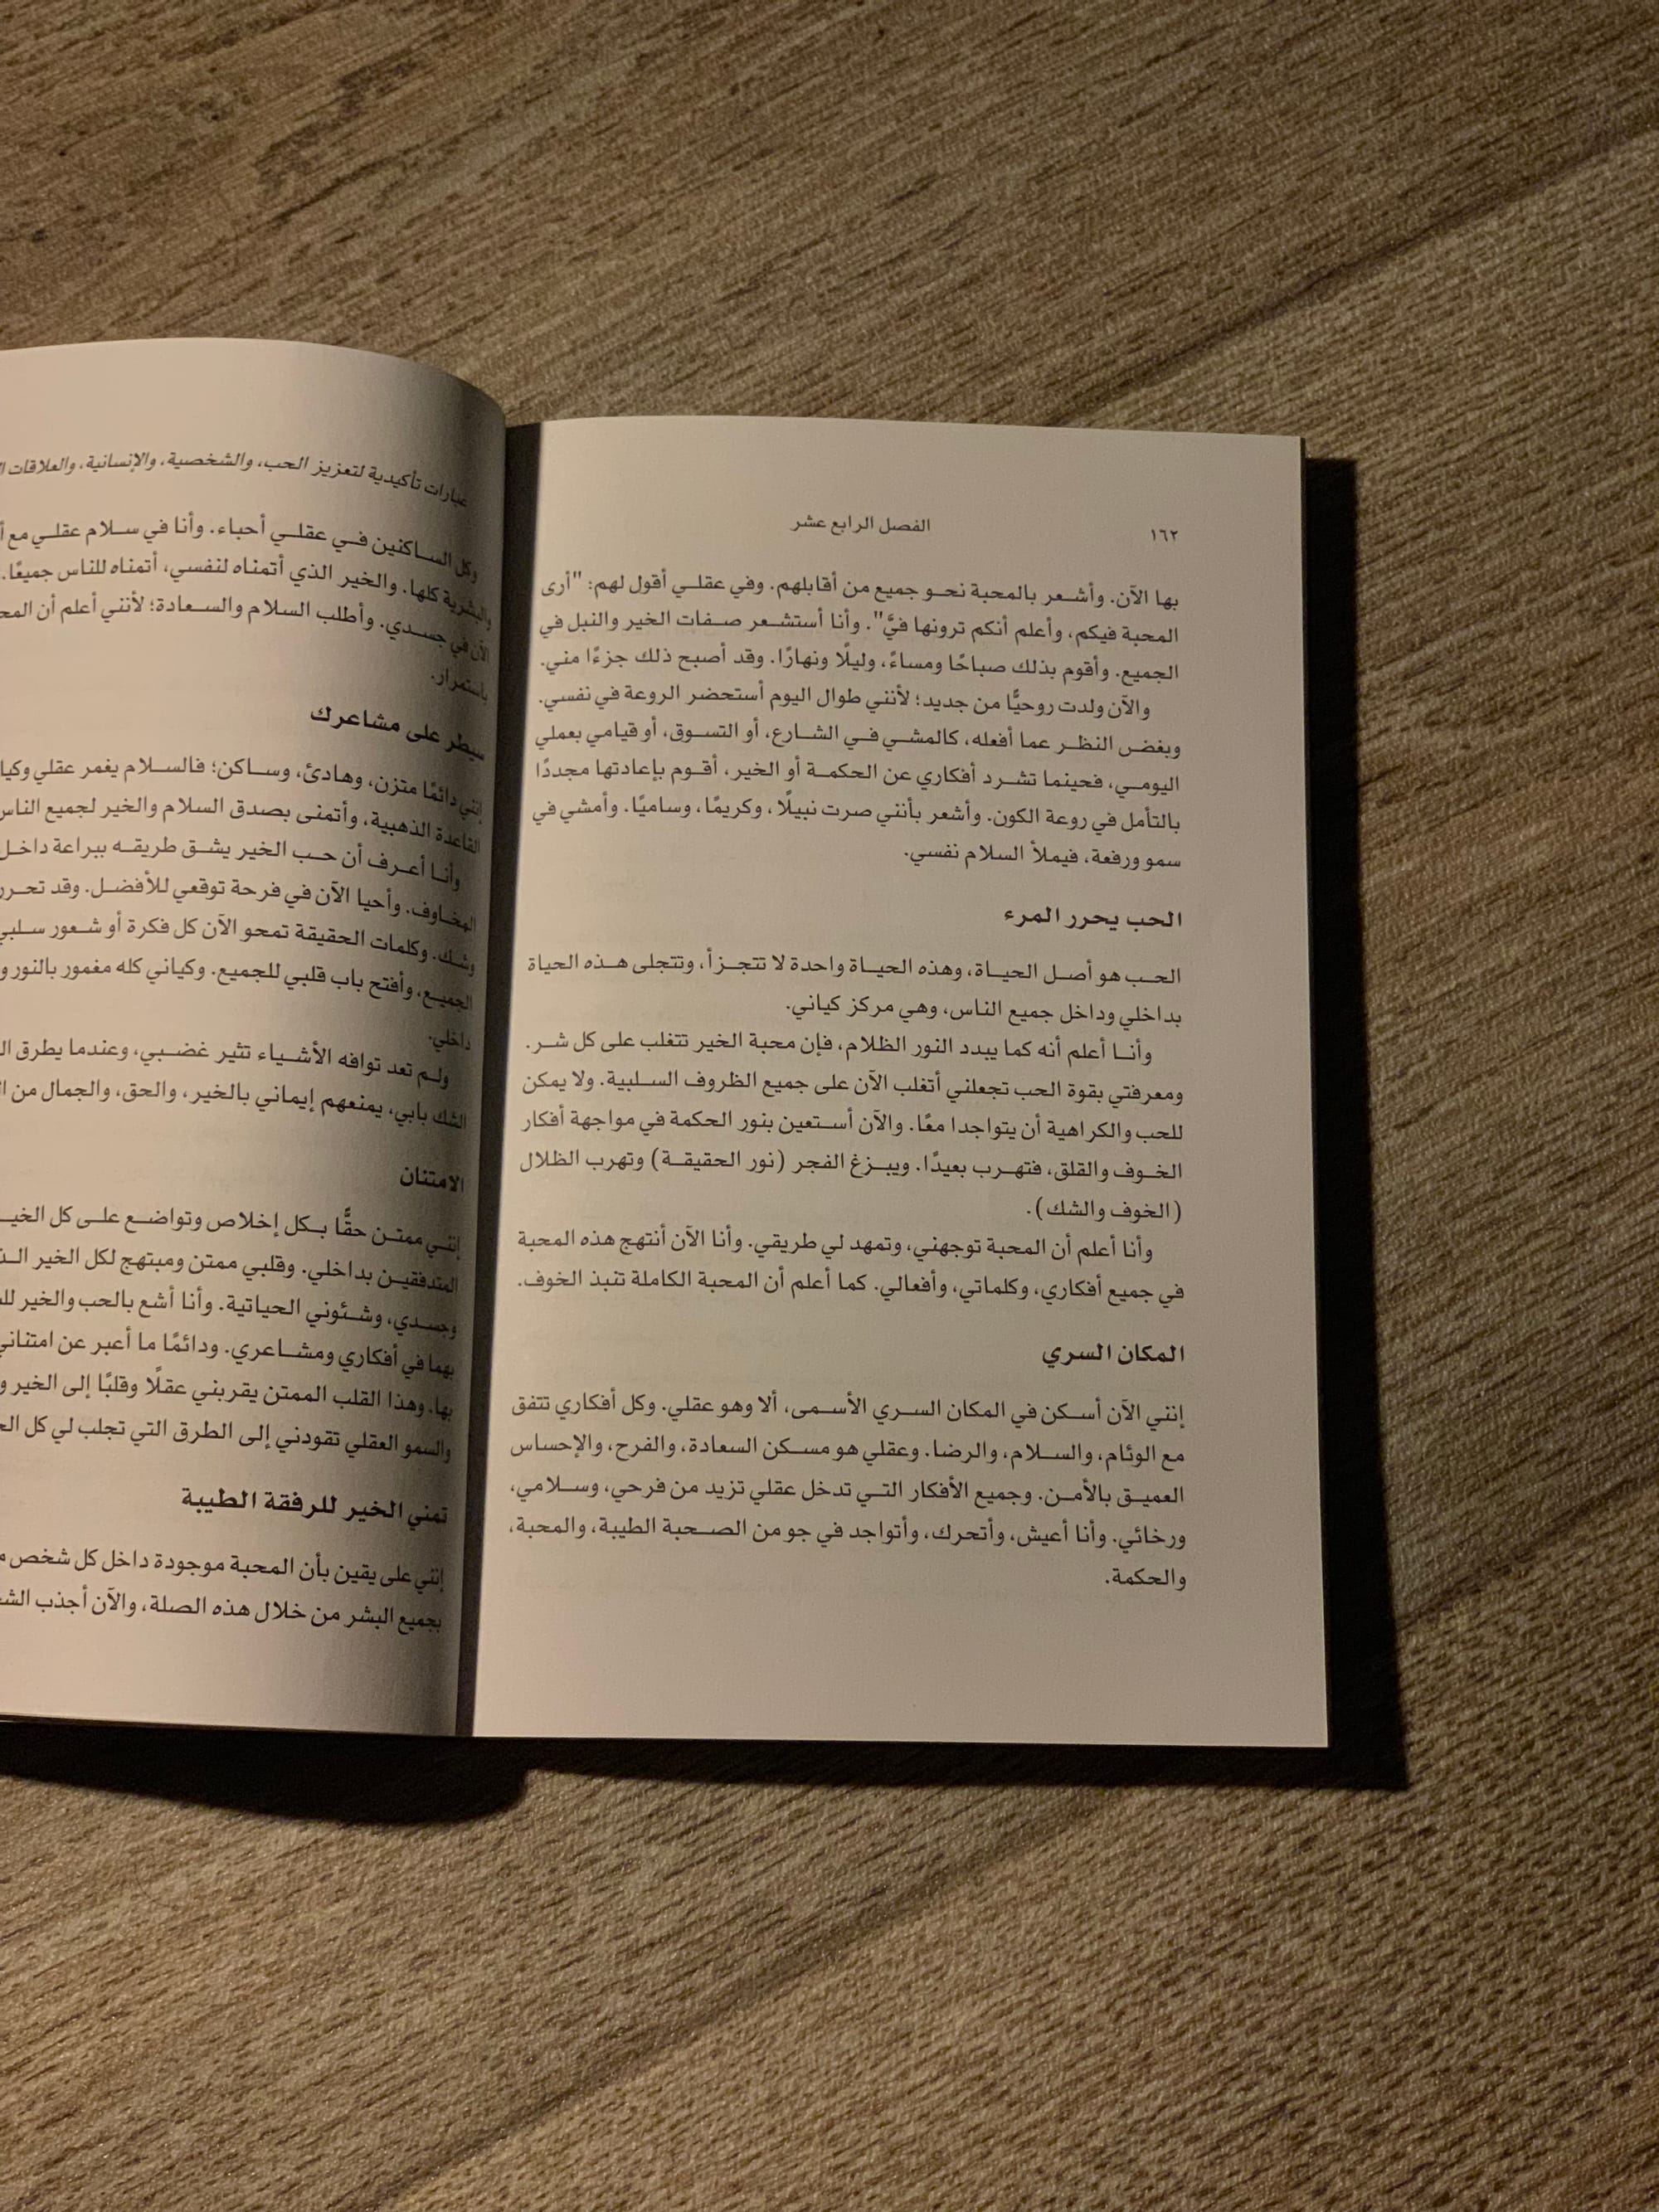 ١٦٢
الفصل الرابع عشر
بها الآن. وأشعر بالمحبة نحو جميع من أقابلهم. وفي عقلي أقول لهم: "أرى
المحبة فيكم، وأعلم أنكم ترونها فيَّ". وأنا أستشعر صفات الخير والنبل في
الجميع. وأقوم بذلك صباحًا ومساءً، وليلًا ونهارًا. وقد أصبح ذلك جزءًا مني.
والآن ولدت روحيًّا من جديد؛ لأنني طوال اليوم أستحضر الروعة في نفسي.
وبغض النظر عما أفعله، كالمشي في الشارع، أو التسوق، أو قيامي بعملي
اليومي، فحينما تشرد أفكاري عن الحكمة أو الخير، أقوم بإعادتها مجددًا
بالتأمل في روعة الكون. وأشعر بأنني صرت نبيلًا، وكريمًا، وساميًا. وأمشي في
سمو ورفعة، فيملأ السلام نفسي.
الحب يحرر المرء
الحب هو أصل الحياة، وهذه الحياة واحدة لا تتجزأ، وتتجلى هذه الحياة
بداخلي وداخل جميع الناس، وهي مركز كياني.
وأنا أعلم أنه كما يبدد النور الظلام، فإن محبة الخير تتغلب على كل شر.
ومعرفتي بقوة الحب تجعلني أتغلب الآن على جميع الظروف السلبية. ولا يمكن
للحب والكراهية أن يتواجدا معًا. والآن أستعين بنور الحكمة في مواجهة أفكار
الخوف والقلق، فتهرب بعيدًا. ويبزغ الفجر (نور الحقيقة) وتهرب الظلال
(الخوف والشك).
وأنا أعلم أن المحبة توجهني، وتمهد لي طريقي. وأنا الآن أنتهج هذه المحبة
في جميع أفكاري، وكلماتي، وأفعالي. كما أعلم أن المحبة الكاملة تنبذ الخوف.
المكان السري
إنني الآن أسكن في المكان السري الأسمى، ألا وهو عقلي. وكل أفكاري تتفق
مع الوئام، والسلام، والرضا. وعقلي هو مسكن السعادة، والفرح، والإحساس
العميق بالأمن. وجميع الأفكار التي تدخل عقلي تزيد من فرحي، وسلامي،
ورخائي. وأنا أعيش، وأتحرك، وأتواجد في جو من الصحبة الطيبة، والمحبة،
والحكمة.
عبارات تأكيدية لتعزيز الحب، والشخصية، والإنسانية، والعلاقات
وكل الساكنين في عقلي أحباء. وأنا في سلام عقلي مع
والبشرية كلها. والخير الذي أتمناه لنفسي، أتمناه للناس جميعًا.
الآن في جسدي. وأطلب السلام والسعادة؛ لأنني أعلم أن
باستمرار.
سيطر على مشاعرك
إنني دائمًا متزن، وهادئ، وساكن؛ فالسلام يغمر عقلي
القاعدة الذهبية، وأتمنى بصدق السلام والخير لجميع الناس
وأنا أعرف أن حب الخير يشق طريقه ببراعة داخل
المخاوف. وأحيا الآن في فرحة توقعي للأفضل. وقد
وشك. وكلمات الحقيقة تمحو الآن كل فكرة أو شعور
الجميع، وأفتح باب قلبي للجميع. وكياني كله مغمور بالنور
داخلي.
ولم تعد توافه الأشياء تثير غضبي، وعندما يطرق
الشك بابي، يمنعهم إيماني بالخير، والحق، والجمال من
الامتنان
إنني ممتن حقًّا بكل إخلاص وتواضع على كل
المتدفقين بداخلي. وقلبي ممتن ومبتهج لكل الخير
وجسدي، وشئوني الحياتية. وأنا أشع بالحب والخير
بهما في أفكاري ومشاعري. ودائمًا ما أعبر عن امتناني
بها. وهذا القلب الممتن يقربني عقلًا وقلبًا إلى الخير
والسمو العقلي تقودني إلى الطرق التي تجلب لي كل
تمني الخير للرفقة الطيبة
إنني على يقين بأن المحبة موجودة داخل كل شخص
بجميع البشر من خلال هذه الصلة، والآن أجذب